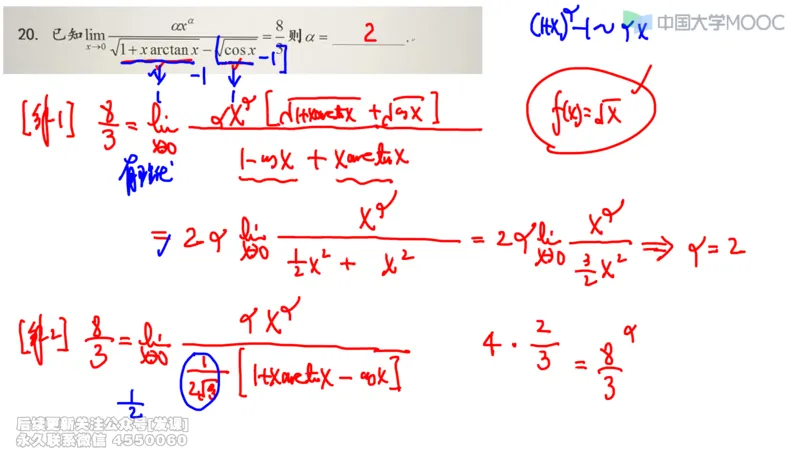 20. 已知 lim x→0 αx^α / (√(1+x arctan x) − √cos x) = 8/3 则 α = 2 .
−1 −1]
1 1
(1+x)^α − 1 ~ αx
中国大学MOOC
[解1] 8/3 = lim x→0 αx^α [√(1+xarctanx) + √cosx] / (1−cosx + xarctanx)
f(x) = √x
有理化
= 2α lim x→0 x^α / (½x² + x²) = 2α lim x→0 x^α / (3/2 x²) ⇒ α = 2
[解2] 8/3 = lim x→0 αx^α / (1/(2√ξ) [1+xarctanx − cosx])
4 · 2/3 = 8/3 α
1/2
后续更新关注公众号[发课]
永久联系微信 4550060